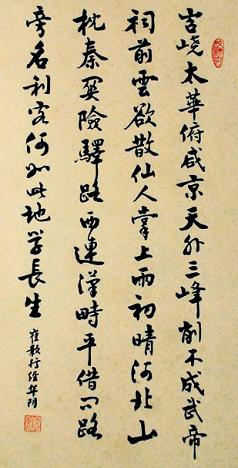 岧嶢太華俯咸京天外三峰削不成武帝
祠前雲欲散仙人掌上雨初晴河北山
枕秦關險驛路西連漢畤平借问路
旁名利客何如此地学長生
崔顥行經華陰